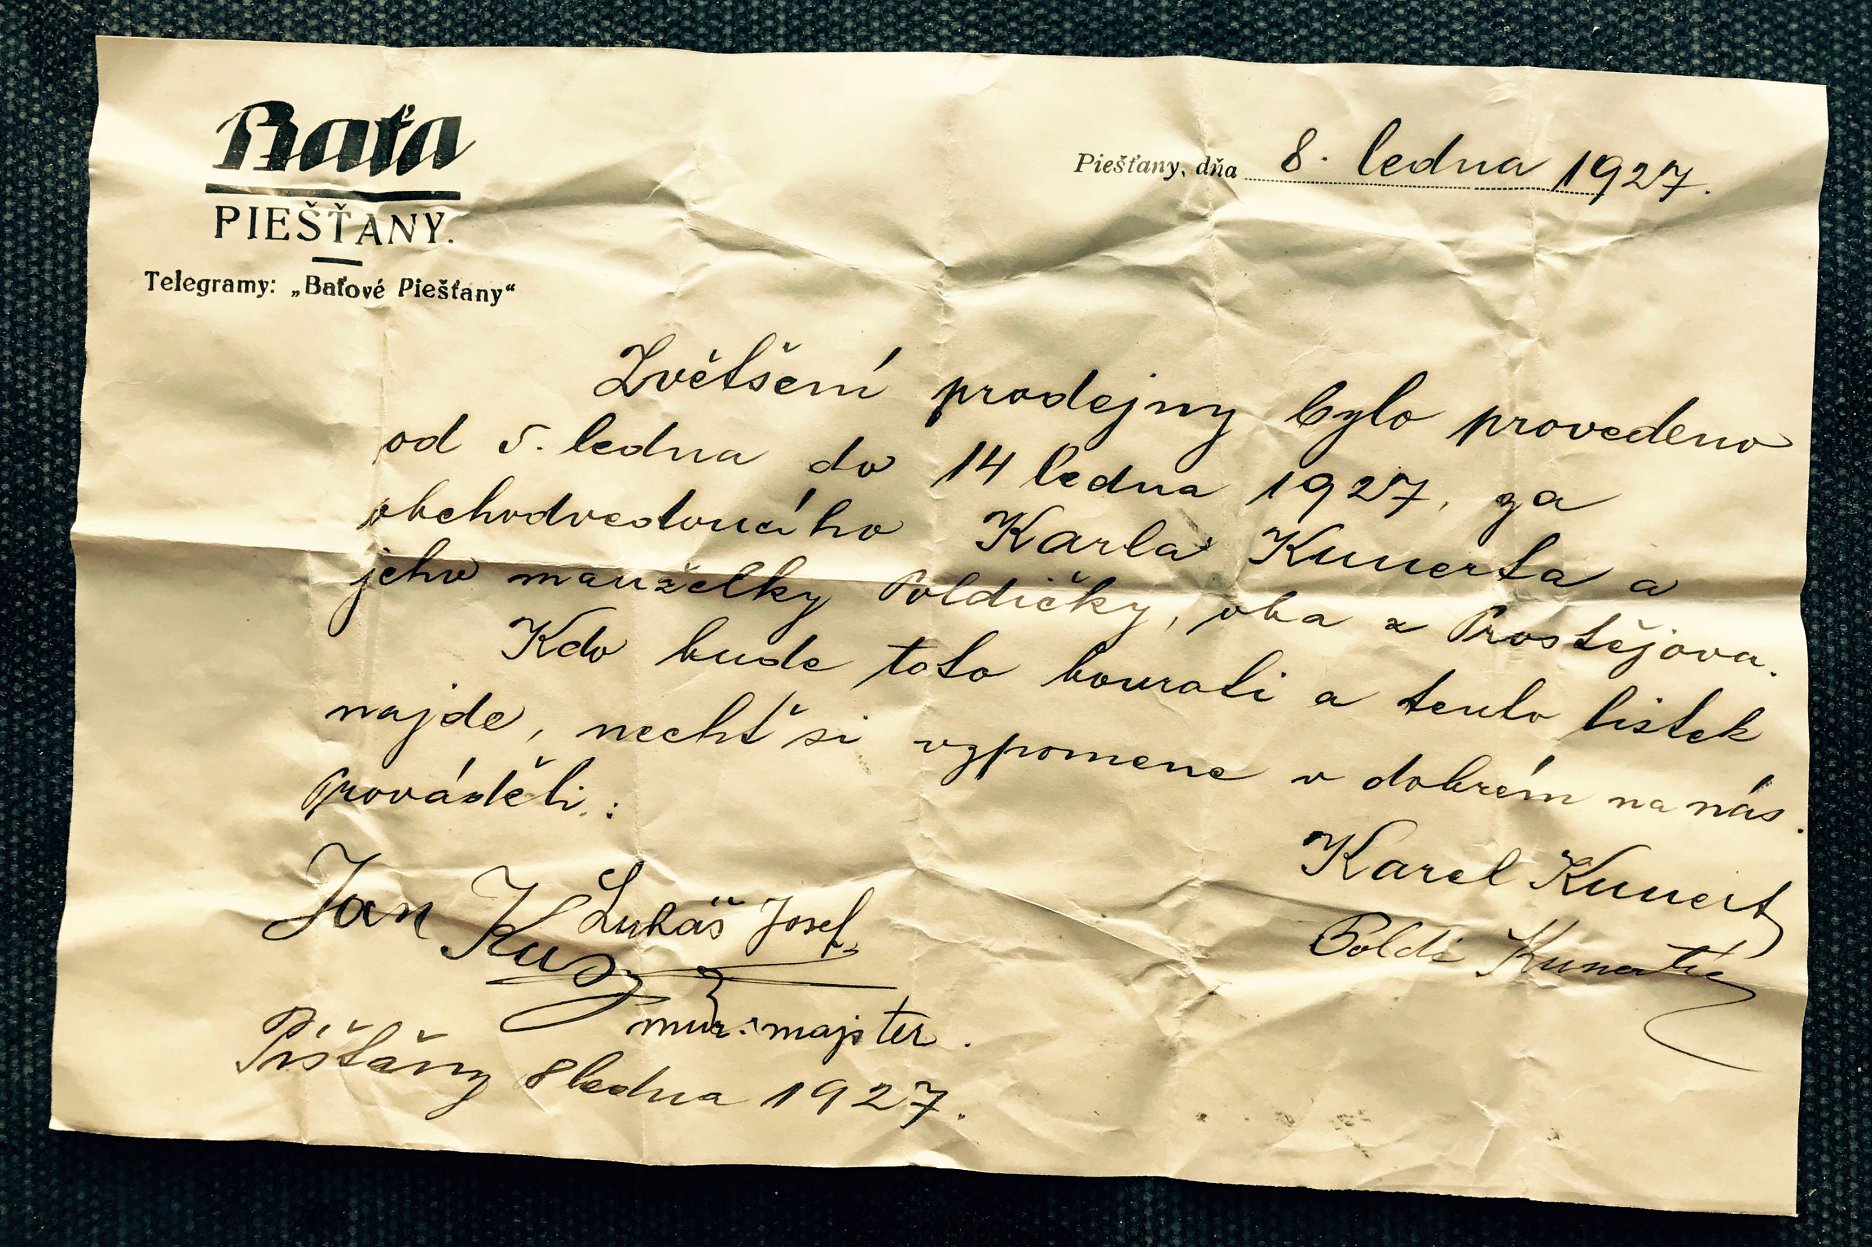 Baťa
PIEŠŤANY.
Telegramy: „Baťové Piešťany“
Piešťany, dňa 8. ledna 1927.
Zvětšení prodejny bylo provedeno
od 5. ledna do 14 ledna 1927, za
obchodvedoucího Karla Kunerta a
jeho manželky Poldičky, oba z Prostějova.
Kdo bude toto bourati a tento lístek
najde, nechť si vzpomene v dobrém na nás.
Prováděli:
Karel Kunert
Poldi Kunertová
Jan Kusý
Lukáš Josef
mur. majster.
Píšťăny 8 ledna 1927.